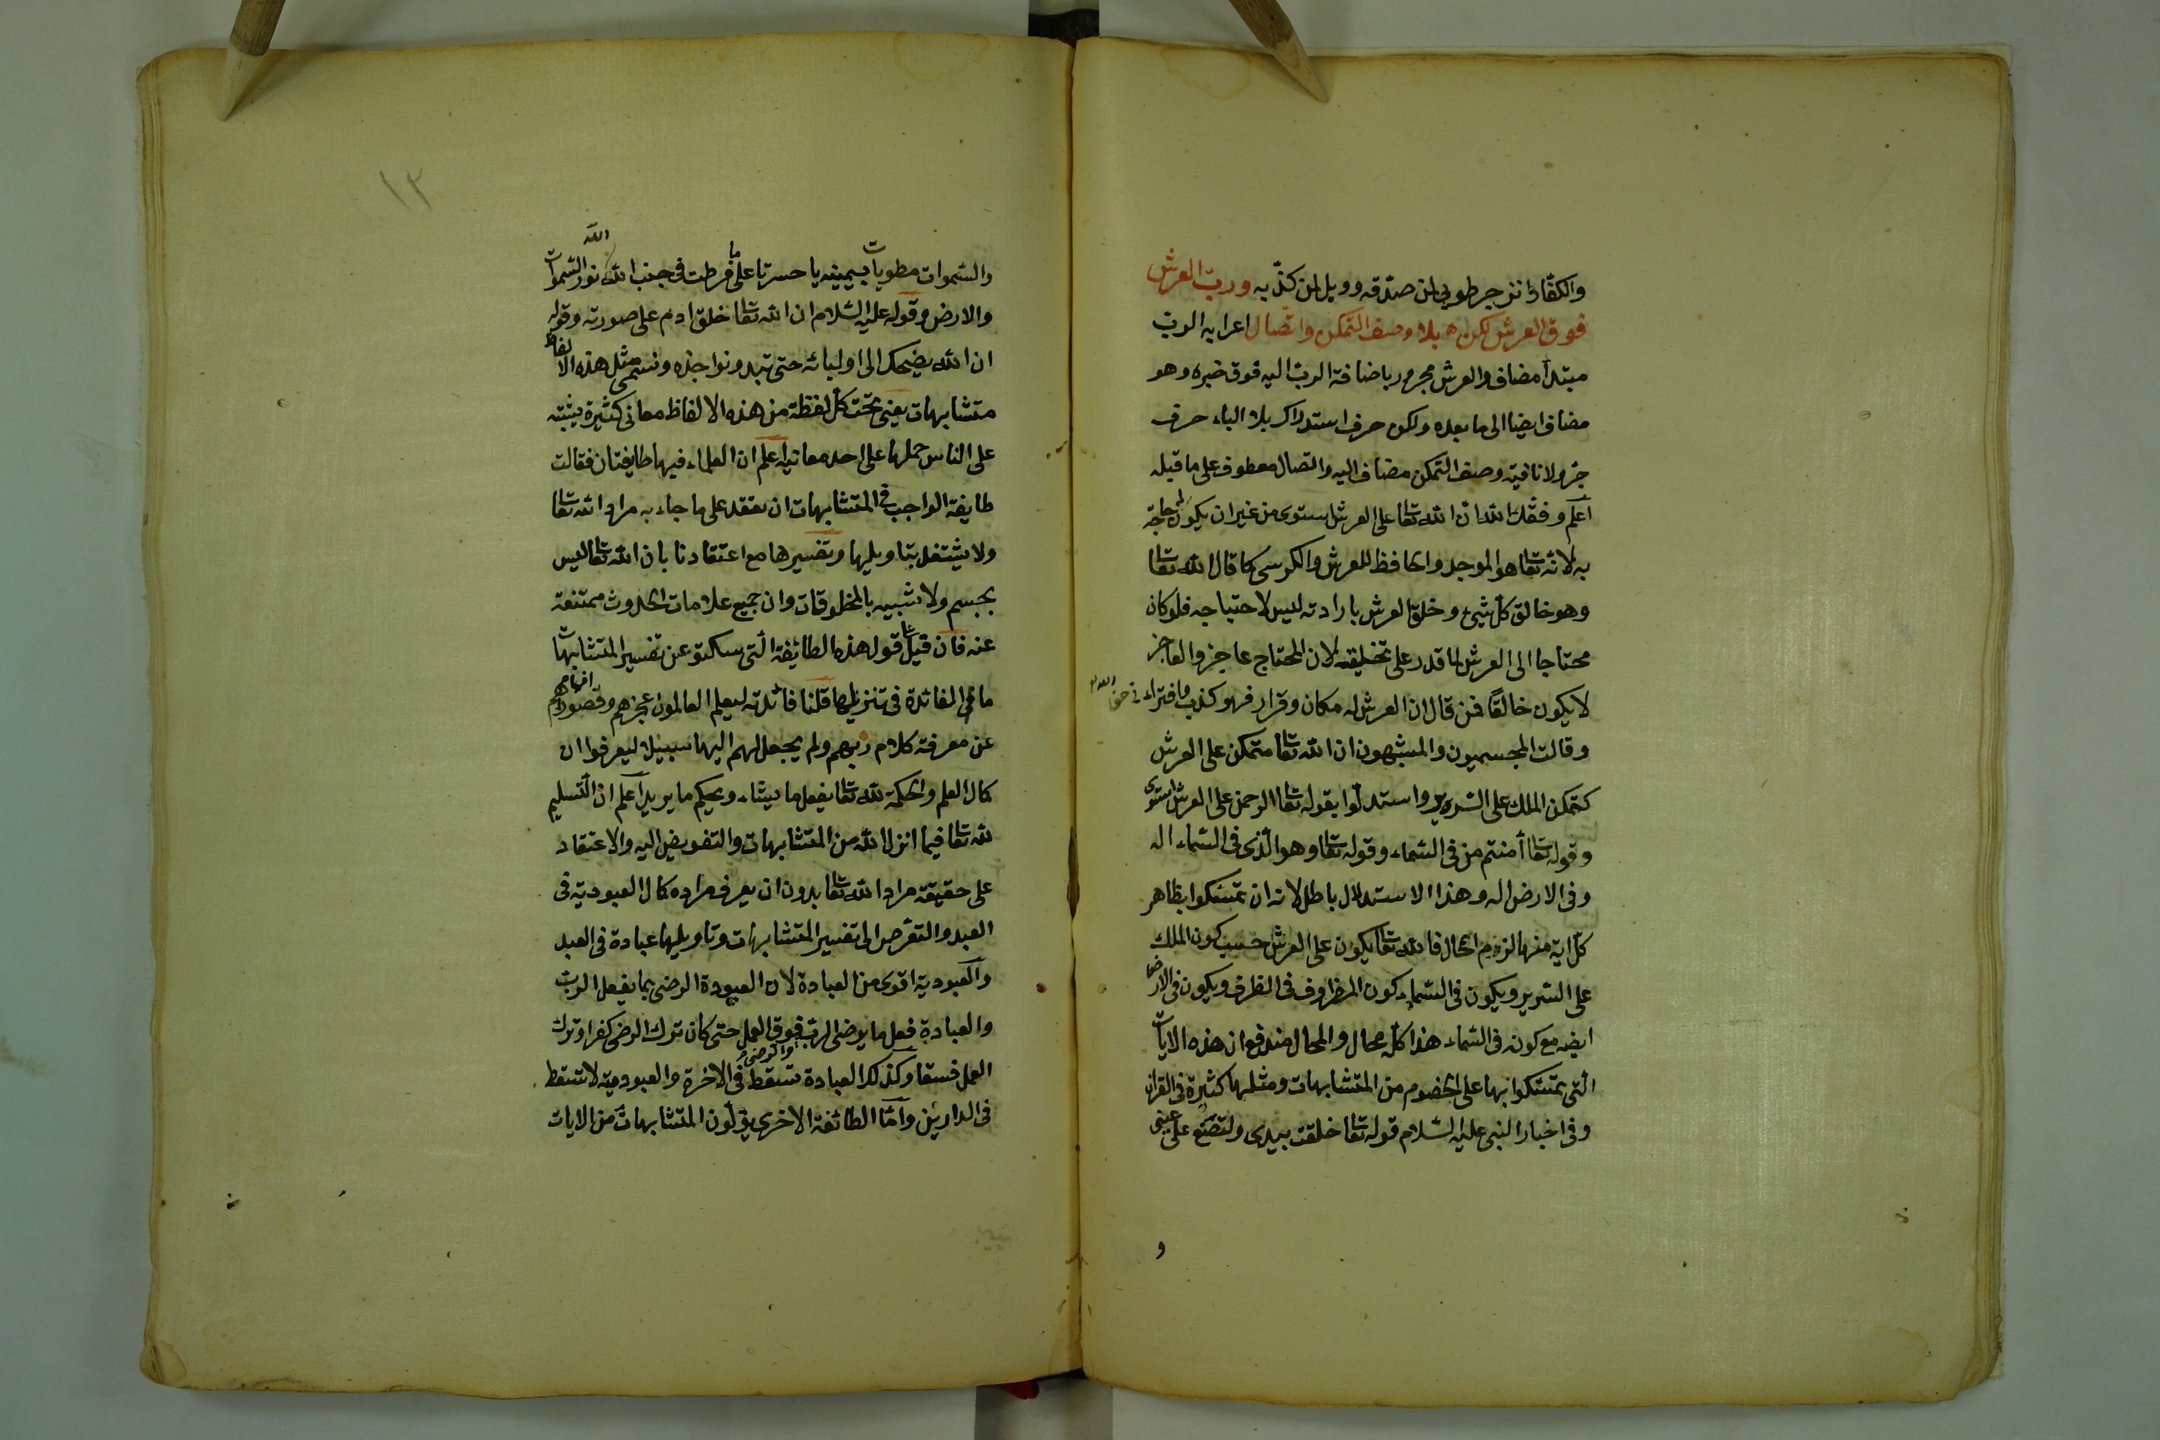 والكفار انزجر طوبى لمن صدقه وويل لمن كذّبه ورب العرش
فوق العرش لكن * بلا وصف التمكن واتّصال اعرابه الربّ
مبتدأ مضاف والعرش مجرور باضافة الربّ اليه فوق خبره وهو
مضاف ايضا الى ما بعده ولكن حرف استدراك بلا الباء حرف
جرّ ولا نافية وصف التمكن مضاف اليه واتصال معطوف على ما قبله
اعلم وفقك الله انّ الله تعا على العرش استوى من غير ان يكون له حاجة
به لانّه تعا هو الموجد والحافظ للعرش والكرسي كما قال الله تعا
وهو خالق كلّ شيئ وخلق العرش بارادته ليس لاحتياجه فلو كان
محتاجا الى العرش لما قدر على تخليقه لان المحتاج عاجز والعاجز
لا يكون خالقًا فمن قال ان العرش له مكان وقرار فهو كذب وافتراء في حق
وقالت المجسميون والمشبهون ان الله تعا متمكن على العرش
كتمكن الملك على السرير واستدلّوا بقوله تعا الرحمن على العرش استوى
وقوله تعا أمنتم من في السماء وقوله تعا وهو الّذى في السّماء اله
وفي الارض اله وهذا الاستدلال باطل لانه ان تمسّكوا بظاهر
كلّ اية منها لزم المحال فالله تعا يكون على العرش حسب كون الملك
على السرير ويكون في السّماء كون المظروف في الظرف ويكون في الارض
ايضه مع كونه في السّماء هذا كلّه محال والمحال مندفع ان هذه الايات
الّتى تمسّكوا بها على الخصوم من المتشابهات ومثلها كثيرة في القران
وفي اخبار النبي عليه السّلام قوله تعا خلقت بيدى ولتصنع على عينى
و
١٣
والسّموات مطويات بيمينه يا حسرتا على ما فرطت في جنب الله الله نور السّموات
والارض وقوله عليه السّلام ان الله تعا خلق ادم على صورته وقوله
ان الله يضحك الى اوليائه حتى تبدو نواجذه ونسمى مثل هذه الالفاظ
متشابهات يعنى تحت كلّ لفظة من هذه الالفاظ معانى كثيرة يشبّه
على الناس حملها على احد معانيه اعلم ان العلماء فيها طايفتان فقالت
طايفة الواجب في المتشابهات ان نعتقد على ما جاء به مراد الله تعا
ولا يشتغل بتاويلها وتفسيرها مع اعتقادنا بان الله تعا ليس
بجسم ولا شبيه بالمخلوقات وان جميع علامات الحدوث ممتنعة
عنه فان قيل قوله هذه الطائفة الّتى سكتو عن تفسير المتشابهات
ما هى الفائدة في تنزيلها قلنا فائدته ليعلم العالمون عجزهم وقصور افهامهم
عن معرفة كلام ربهم ولم يجعل لهم اليها سبيلا ليعرفوا ان
كمال العلم والحكمة لله تعا يفعل ما يشاء ويحكم ما يريد اعلم ان التّسليم
لله تعا فيما انزل الله من المتشابهات والتفويض اليه والاعتقاد
على حقيقة مراد الله تعا بدون ان يعرف مراده كمال العبودية في
العبد والتعرّض الى تفسير المتشابهات وتاويلها عبادة في العبد
والعبودية اقوى من العبادة لان العبودة الرضى بما يفعل الربّ
والعبادة فعل ما يرضى الربّ والرضى فوق العمل حتى كان ترك الرضى كفرا وترك
العمل فسقا وكذلك العبادة تسقط في الاخرة والعبودية لا تسقط
في الدارين وامّا الطائفة الاخرى يقولون المتشابهات من الايات